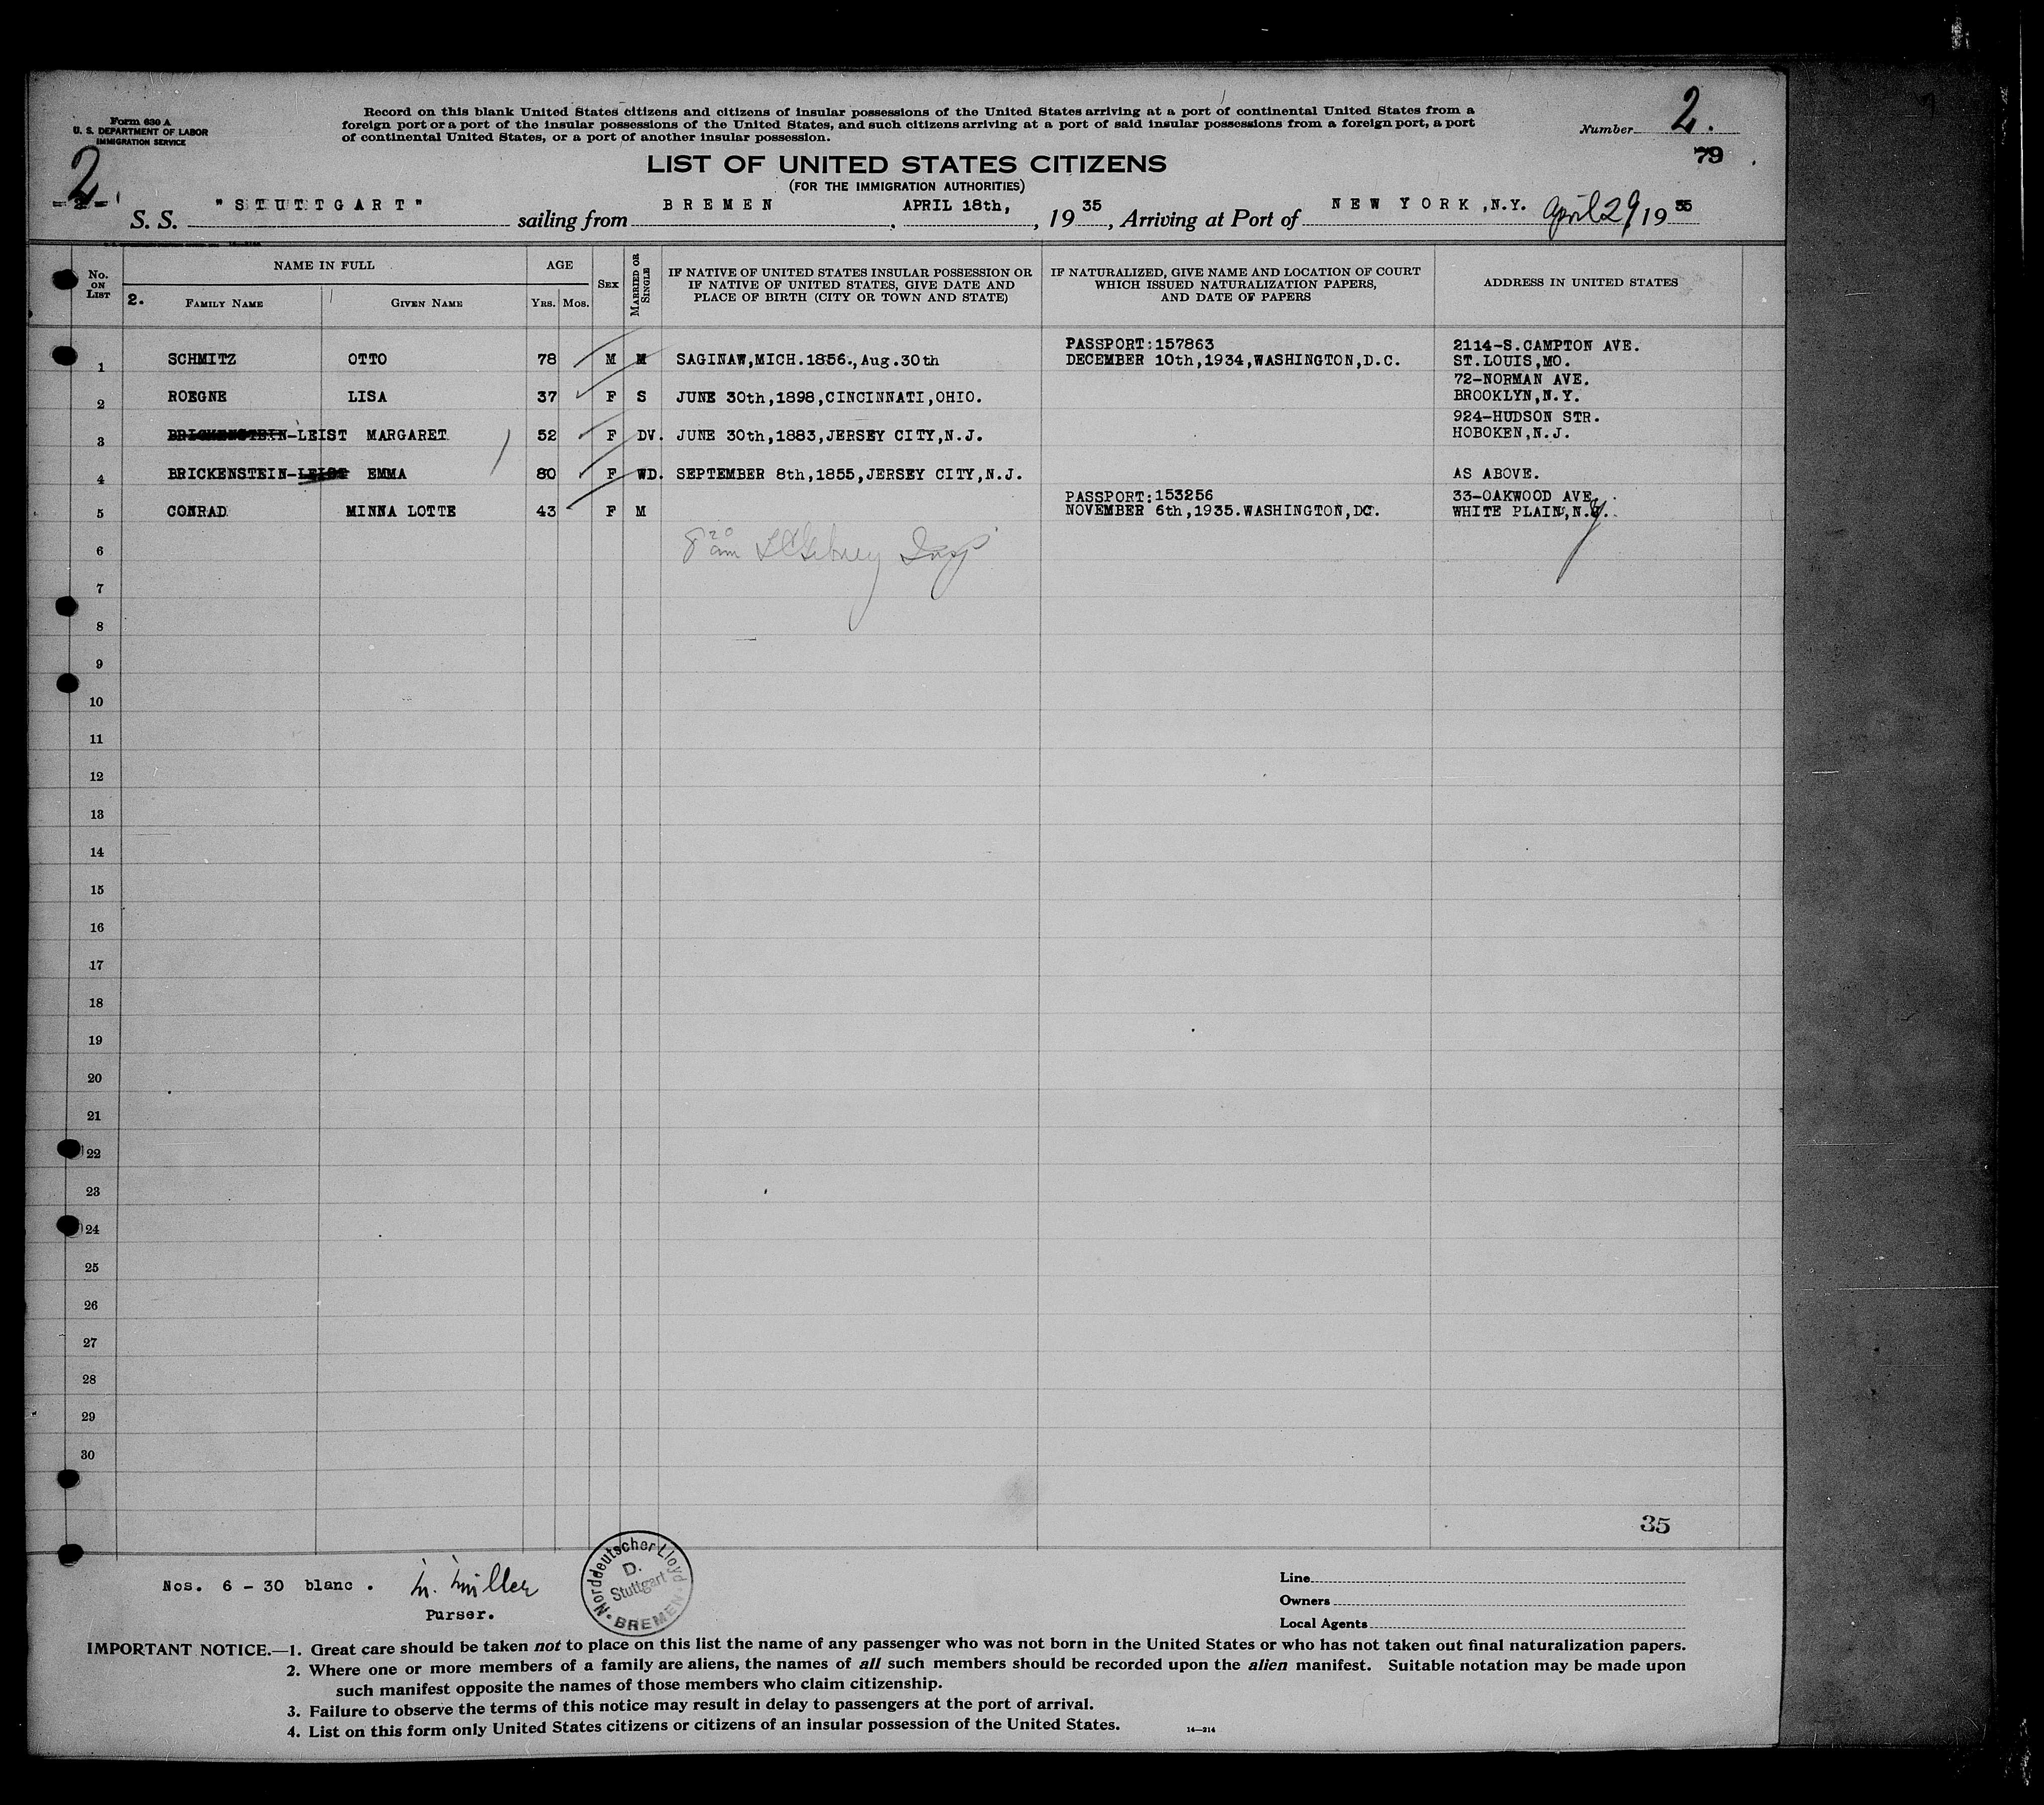 Form 630 A
U. S. DEPARTMENT OF LABOR
IMMIGRATION SERVICE
Record on this blank United States citizens and citizens of insular possessions of the United States arriving at a port of continental United States from a
foreign port or a port of the insular possessions of the United States, and such citizens arriving at a port of said insular possessions from a foreign port, a port
of continental United States, or a port of another insular possession.
Number 2.
79
2.
LIST OF UNITED STATES CITIZENS
(FOR THE IMMIGRATION AUTHORITIES)
S. S. "STUTTGART" sailing from BREMEN, APRIL 18th, 1935, Arriving at Port of NEW YORK, N.Y. April 29, 1935
No. ON LIST
NAME IN FULL
2. FAMILY NAME GIVEN NAME
AGE
YRS. MOS.
SEX
MARRIED OR SINGLE
IF NATIVE OF UNITED STATES INSULAR POSSESSION OR
IF NATIVE OF UNITED STATES, GIVE DATE AND
PLACE OF BIRTH (CITY OR TOWN AND STATE)
IF NATURALIZED, GIVE NAME AND LOCATION OF COURT
WHICH ISSUED NATURALIZATION PAPERS,
AND DATE OF PAPERS
ADDRESS IN UNITED STATES
PASSPORT:157863 2114-S.CAMPTON AVE.
1 SCHMITZ OTTO 78 M M SAGINAW,MICH.1856.,Aug.30th DECEMBER 10th,1934,WASHINGTON,D.C. ST.LOUIS,MO.
72-NORMAN AVE.
2 ROEGNE LISA 37 F S JUNE 30th,1898,CINCINNATI,OHIO. BROOKLYN,N.Y.
924-HUDSON STR.
3 BRICKENSTEIN-LEIST MARGARET 52 F DV. JUNE 30th,1883,JERSEY CITY,N.J. HOBOKEN,N.J.
4 BRICKENSTEIN-LEIST EMMA 80 F WD. SEPTEMBER 8th,1855,JERSEY CITY,N.J. AS ABOVE.
PASSPORT:153256 33-OAKWOOD AVE.
5 CONRAD MINNA LOTTE 43 F M NOVEMBER 6th,1935.WASHINGTON,DC. WHITE PLAIN,N.Y.
6 8 20 am Insp
7
8
9
10
11
12
13
14
15
16
17
18
19
20
21
22
23
24
25
26
27
28
29
30
35
Nos. 6 - 30 blanc. M. Müller
Purser.
Norddeutscher Lloyd
D.
Stuttgart
BREMEN
Line
Owners
Local Agents
IMPORTANT NOTICE.—1. Great care should be taken not to place on this list the name of any passenger who was not born in the United States or who has not taken out final naturalization papers.
2. Where one or more members of a family are aliens, the names of all such members should be recorded upon the alien manifest. Suitable notation may be made upon
such manifest opposite the names of those members who claim citizenship.
3. Failure to observe the terms of this notice may result in delay to passengers at the port of arrival.
4. List on this form only United States citizens or citizens of an insular possession of the United States.
14—214